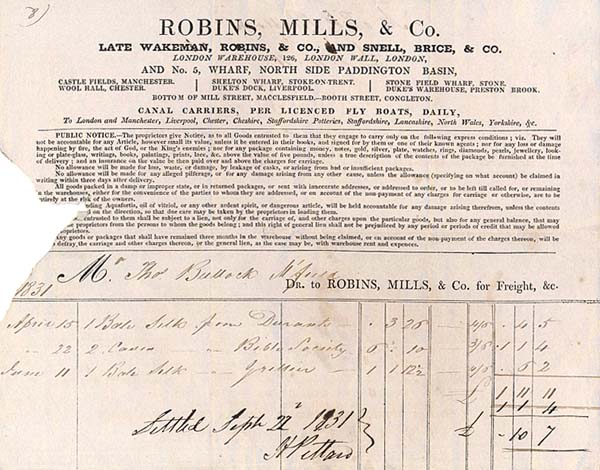 8)
ROBINS, MILLS, & Co.
LATE WAKEMAN, ROBINS, & CO., AND SNELL, BRICE, & CO.
LONDON WAREHOUSE, 126, LONDON WALL, LONDON,
AND No. 5, WHARF, NORTH SIDE PADDINGTON BASIN,
CASTLE FIELDS, MANCHESTER. SHELTON WHARF, STOKE-ON-TRENT. STONE FIELD WHARF, STONE,
WOOL HALL, CHESTER. DUKE'S DOCK, LIVERPOOL. DUKE'S WAREHOUSE, PRESTON BROOK.
BOTTOM OF MILL STREET, MACCLESFIELD.—BOOTH STREET, CONGLETON.
CANAL CARRIERS, PER LICENCED FLY BOATS, DAILY,
To London and Manchester, Liverpool, Chester, Cheshire, Staffordshire Potteries, Staffordshire, Lancashire, North Wales, Yorkshire, &c.
PUBLIC NOTICE.—The proprietors give Notice, as to all Goods entrusted to them that they engage to carry only on the following express conditions; viz. They will
not be accountable for any Article, however small its value, unless it be entered in their books, and signed for by them or one of their known agents; nor for any loss or damage
happening by fire, the act of God, or the King's enemies; nor for any package containing money, notes, gold, silver, plate, watches, rings, diamonds, pearls, jewellery, look-
ing or plate-glass, writings, books, paintings, prints, lace, &c. above the value of five pounds, unless a true description of the contents of the package be furnished at the time
of delivery; and an insurance on the value be then paid over and above the charges for carriage.
No allowance will be made for loss, waste, or damage, by leakage of casks, arising from bad or insufficient packages.
No allowance will be made for any alleged pilferage, or for any damage arising from any other cause, unless the allowance (specifying on what account) be claimed in
writing within three days after delivery.
All goods packed in a damp or improper state, or in returned packages, or sent with inaccurate addresses, or addressed to order, or to be left till called for, or remaining
in the warehouses, either for the convenience of the parties to whom they are addressed, or on account of the non-payment of any charges for carriage or otherwise, are to be
entirely at the risk of the owners.
ending Aquafortis, oil of vitriol, or any other ardent spirit, or dangerous article, will be held accountable for any damage arising therefrom, unless the contents
ed on the direction, so that due care may be taken by the proprietors in loading them.
entrusted to them shall be subject to a lien, not only for the carriage, and other charges upon the particular goods, but also for any general balance, that may
proprietors from the persons to whom the goods belong; and this right of general lien shall not be prejudiced by any period or periods of credit that may be allowed
proprietors.
Any goods or packages that shall have remained three months in the warehouse without being claimed, or on account of the non payment of the charges thereon, will be
defray the carriage and other charges thereon, or the general lien, as the case may be, with warehouse rent and expences.
Mr Thos Bullock
1831 DR. to ROBINS, MILLS, & Co. for Freight, &c.
April 15 1 Bale Silk from Durants 3 26 4/6 . 4 5
" 22 2 Cases " Bible Society 6 " 10 3/6 1 1 4
June 11 1 Bale Silk 1 1 4/6 . 6 2
1 11 11
1 1 4
Settled Septr 22d 1831 10 7